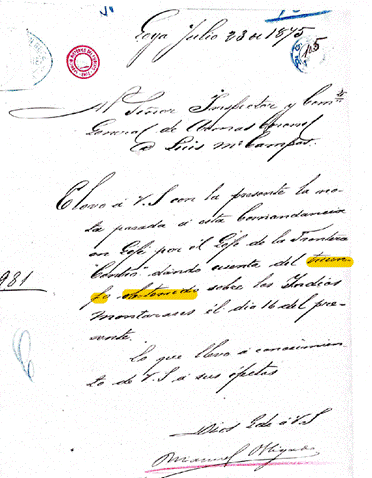 Goya Julio 23 de 1875
115
Al Señor Inspector y Comte
General de Armas Coronel
D Luis M Campos.
Elevo á V.S con la presente la no-
ta pasada á esta Comandancia
en Gefe por el Gefe de la Frontera
"Cordova" dando cuenta del triun-
fo obtenido sobre los Indios
981
Montaraces el dia 16 del pre-
sente.
Lo que llevo á conocimien
to de V.S á sus efectos
Dios Gde á V.S
Manuel Obligado